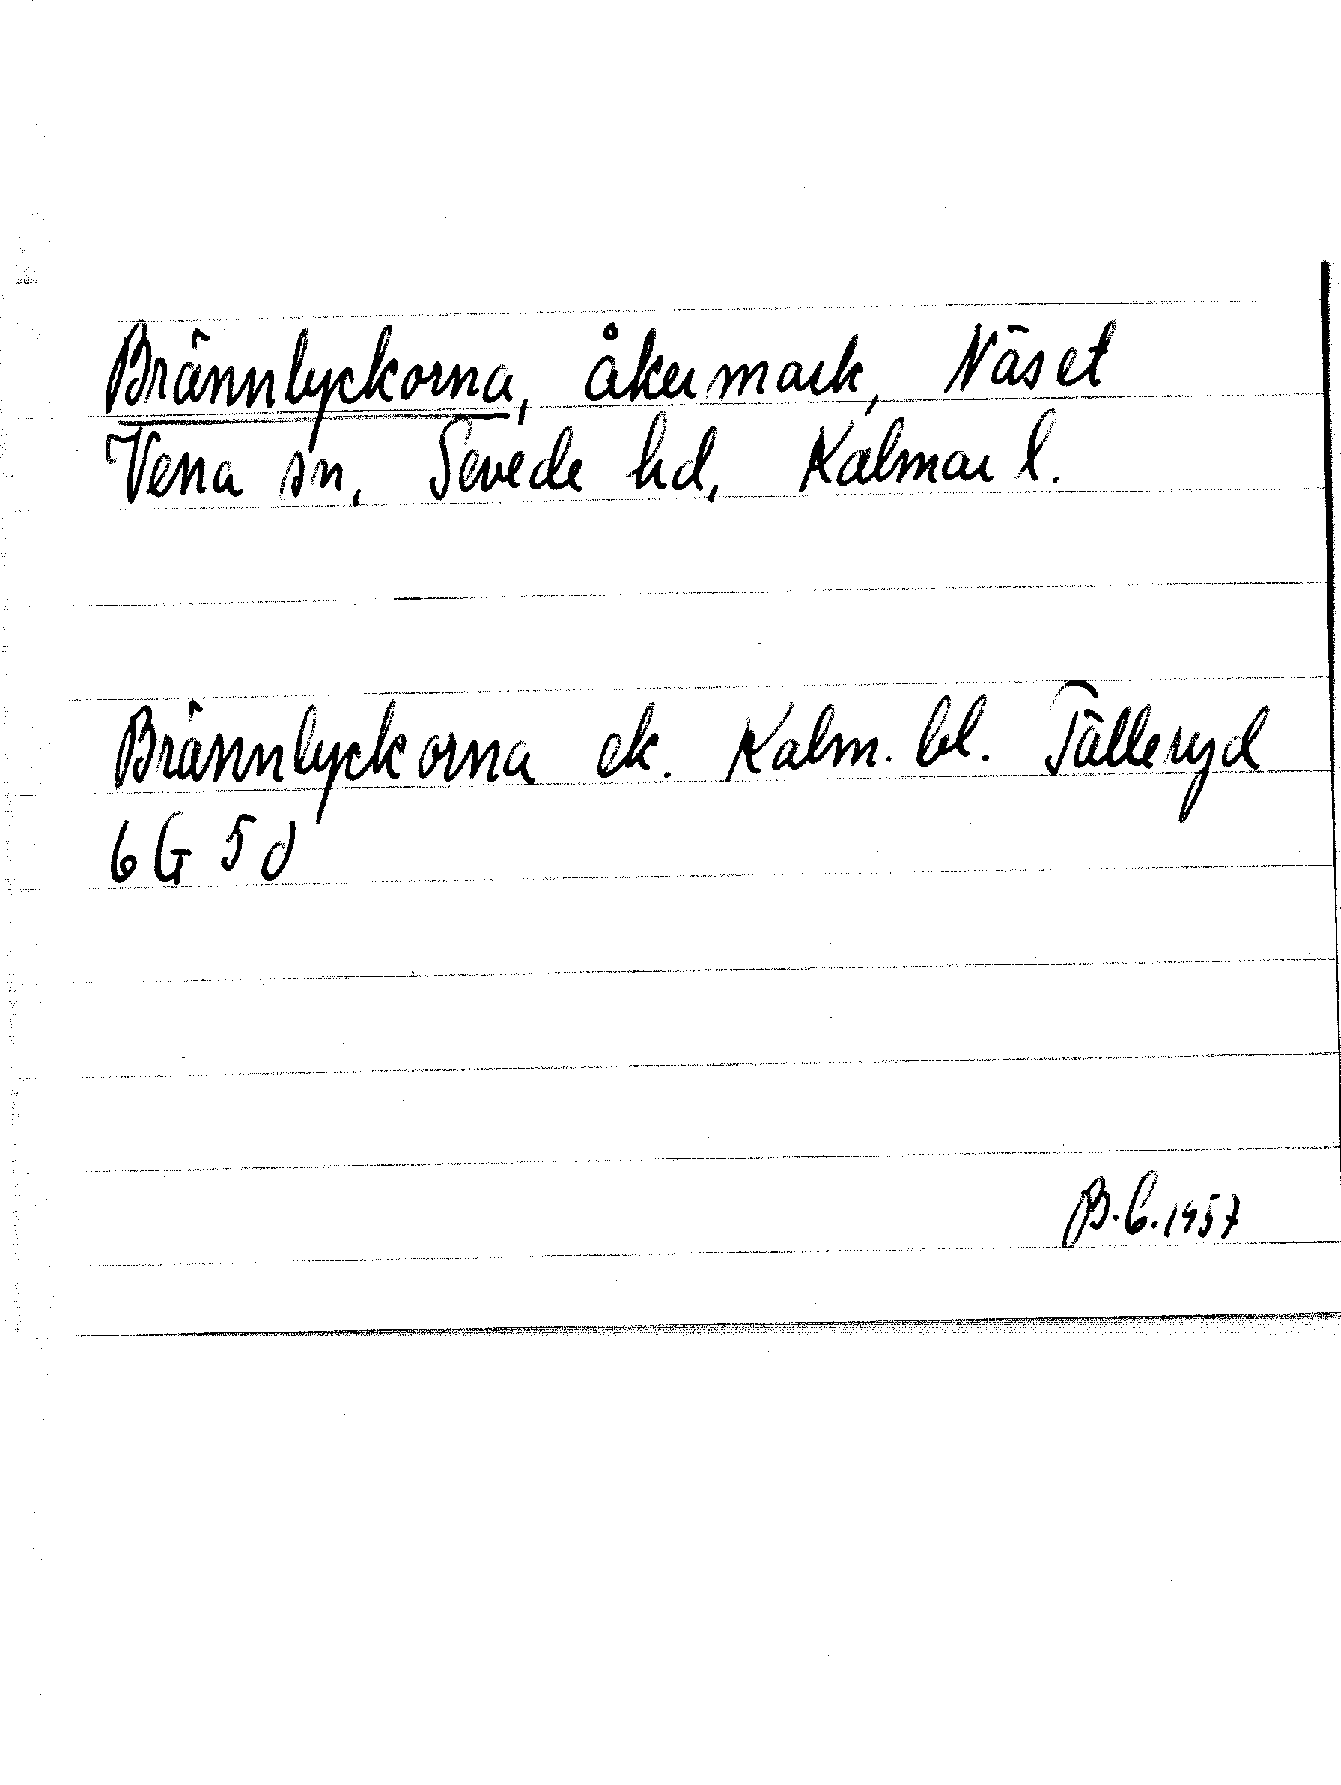 Brännlyckorna, åkermark, Näset
Vena sn, Sevede hd, Kalmar l.
Brännlyckorna ek. Kalm. bl. Tälleryd
6 G 5 d
B.C.1957